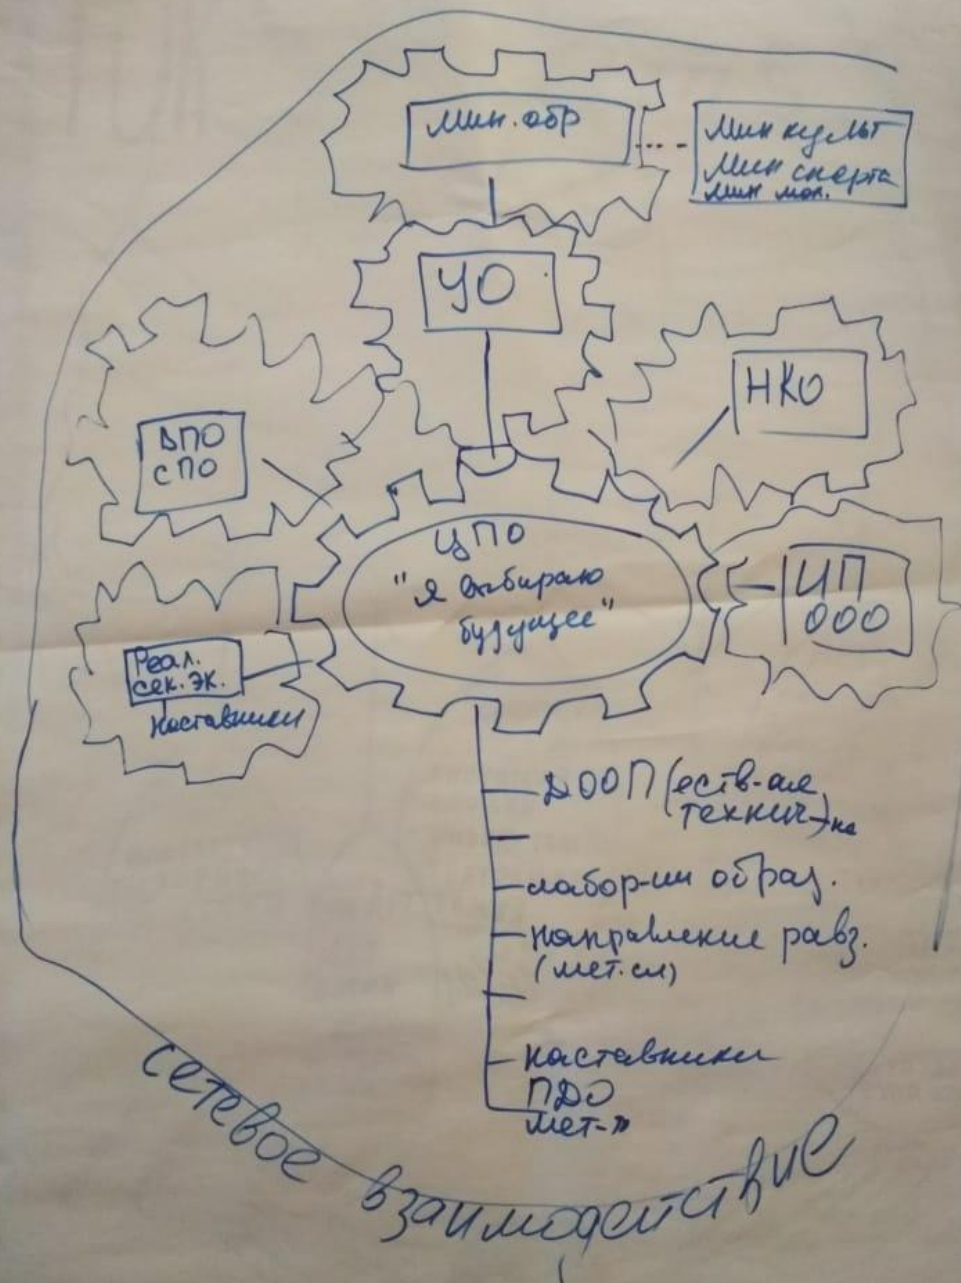 Мин. обр
Мин культ
Мин спорта
Мин мол.
УО
НКО
ВПО
СПО
ЦПО
"Я выбираю
будущее"
ИП
ООО
Реал.
сек. эк.
наставники
ДООП (еств-ая
технич)
лабор-ии образ.
направление разв.
наставники
ПДО
мет-
сетевое взаимодействие